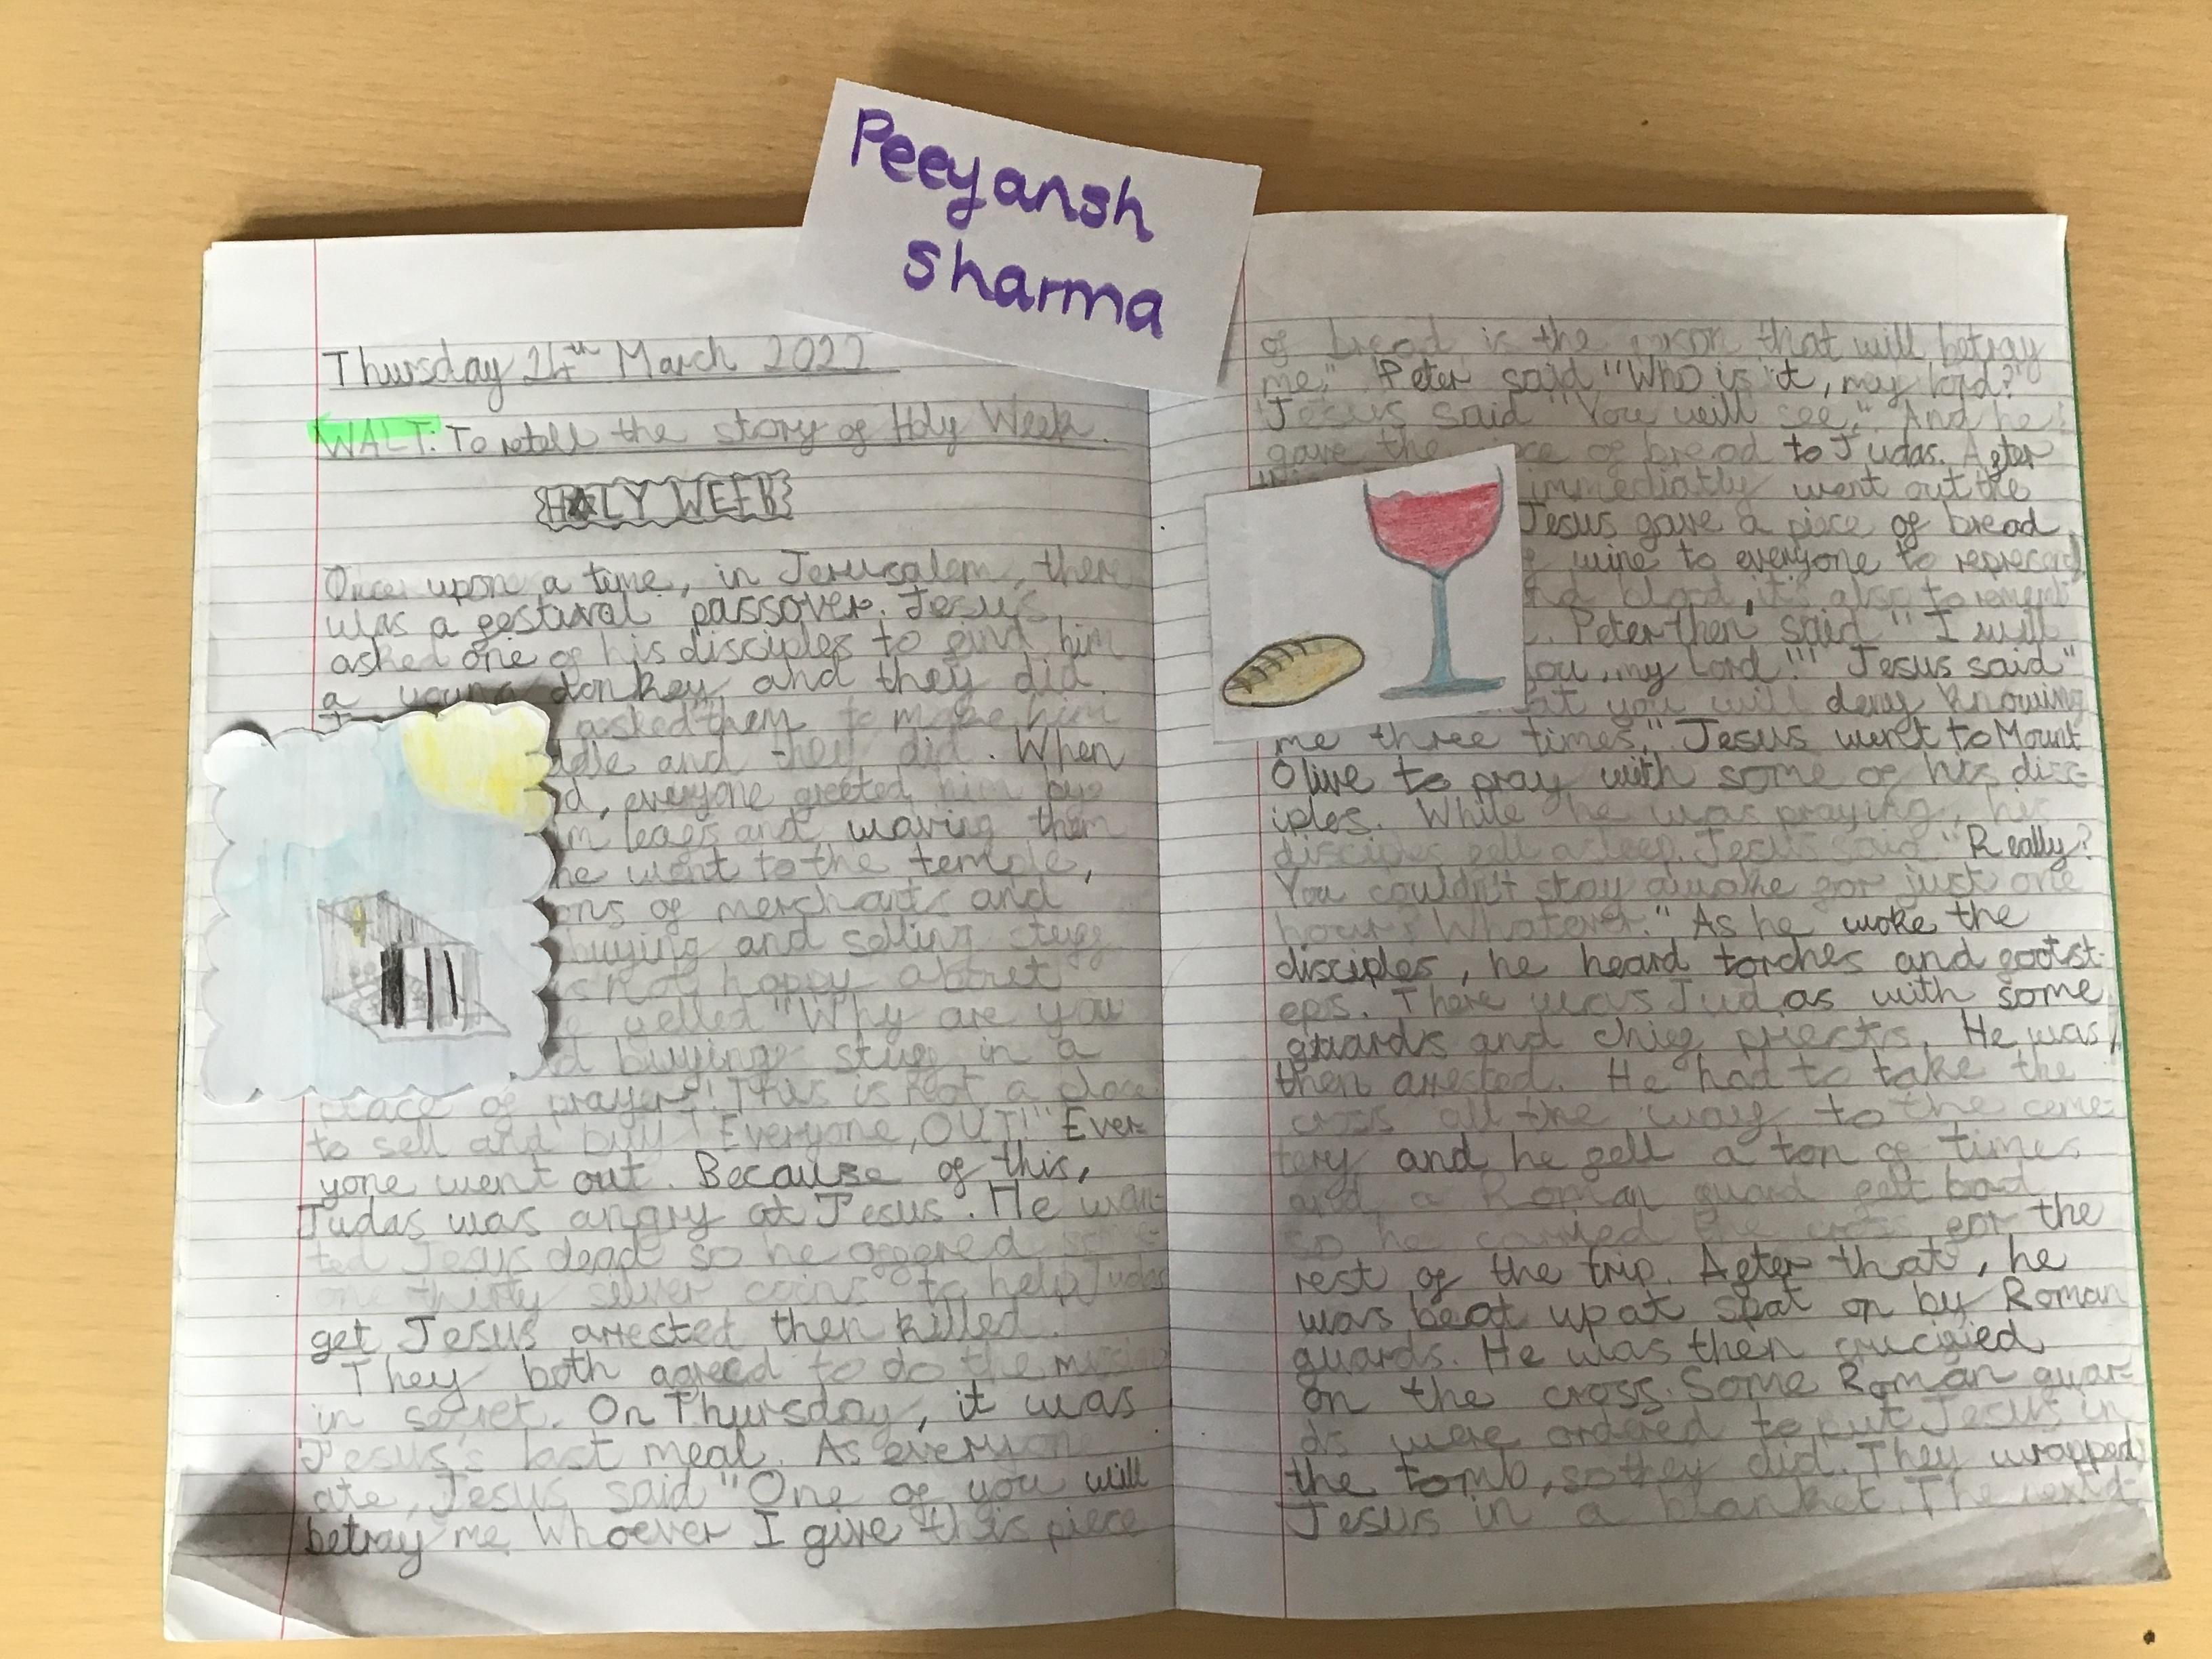 Peeyansh
Sharma
Thursday 24th March 2022
WALT: To retell the story of Holy Week.
HOLY WEEK
Once upon a time, in Jerusalem, there
was a festival passover. Jesus
asked one of his disciples to find him
a young donkey and they did.
asked them to make him
ddle and they did. When
d, everyone greeted him by
m leafs and waving them
he went to the temple,
ons of merchants and
buying and selling stuff
is not happy about
e yelled "Why are you
d buying stuff in a
place of prayer! This is not a place
to sell and buy! Everyone, OUT!" Ever-
yone went out. Because of this,
Judas was angry at Jesus. He wan-
ted Jesus dead so he offered
one thirty silver coins to help Judas
get Jesus arrested then killed.
They both agreed to do the mission
in secret. On Thursday, it was
Jesus's last meal. As everyon
ate, Jesus said "One of you will
betray me. Whoever I give this piece
of bread is the person that will betray
me." Peter said "Who is it, my lord?"
Jesus said "You will see." And he
gave the piece of bread to Judas. After
immediatly went out the
Jesus gave a piece of bread
wine to everyone to represend
nd blood, it's also to rememb
. Peter then said "I will
ou, my Lord!!!" Jesus said"
at you will deny knowing
me three times." Jesus went to Mount
Olive to pray with some of his disc-
iples. While he was praying, his
disciples fell asleep. Jesus said "Really?
You couldn't stay awake for just one
hour? Whatever." As he woke the
disciples, he heard torches and footst-
eps. There was Judas with some
guards and chief priests. He was
then arrested. He had to take the
cross all the way to the ceme-
tery and he fell a ton of times
and a Roman guard felt bad
so he carried the cross for the
rest of the trip. After that, he
was beat up at spat on by Roman
guards. He was then crucified
on the cross. Some Roman guar-
ds were ordered to put Jesus in
the tomb, so they did. They wrapped
Jesus in a blanket. The next d-